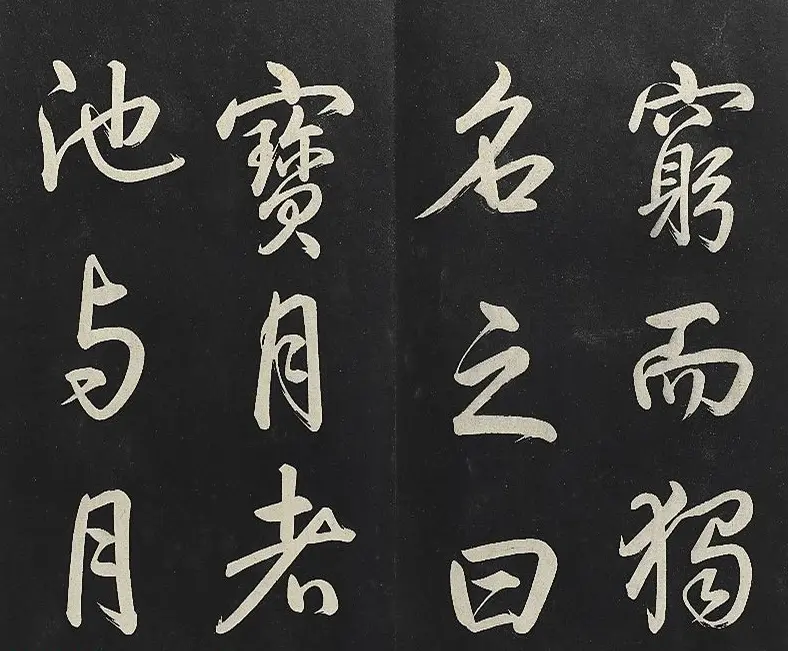 窮而獨
名之曰
寶月者
池与月